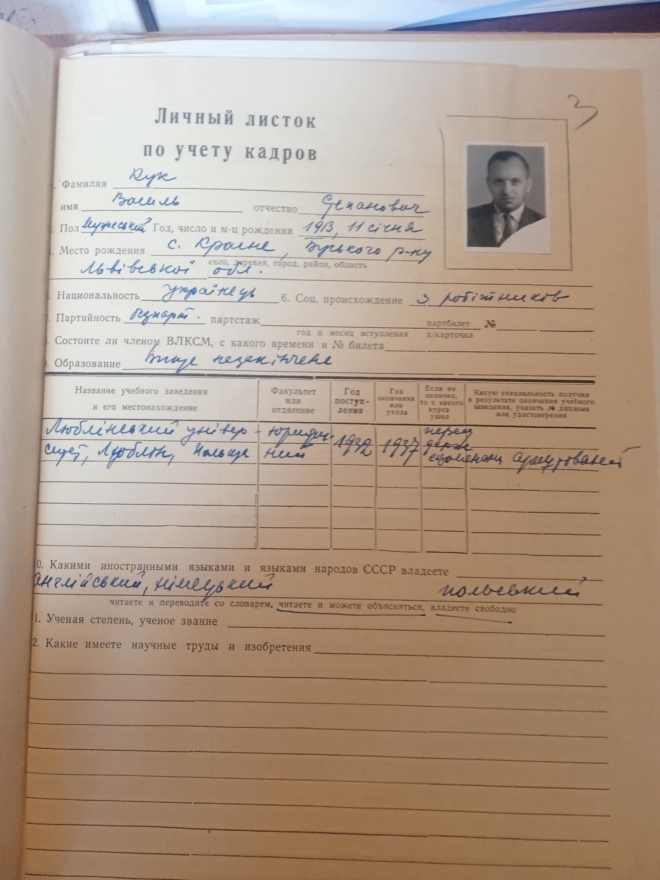 3
Личный листок
по учету кадров
Фамилия Кук
имя Василь отчество Степанович
Пол Мужеський Год, число и м-ц рождения 1913, 11 січня
Место рождения с. Красне, Буського р-ну
село, деревня, город, район, область
Львівської обл.
Национальность Українець 6. Соц. происхождение з робітників
Партийность безпарт. партстаж партбилет №
год и месяц вступления к/карточка
Состоите ли членом ВЛКСМ, с какого времени и № билета
Образование вище незакінчене
Название учебного заведения и его местонахождение Факультет или отделение Год поступления Год окончания или ухода Если не окончил, то с какого курса ушел Какую специальность получил в результате окончания учебного заведения, указать № диплома или удостоверения
Люблінський універ- юридич- перед
ситет, Люблін, Польща ний 1932 1937 держ
арештований
0. Какими иностранными языками и языками народов СССР владеете
англійський, німецький польський
читаете и переводите со словарем, читаете и можете объясняться, владеете свободно
1. Ученая степень, ученое звание
2. Какие имеете научные труды и изобретения